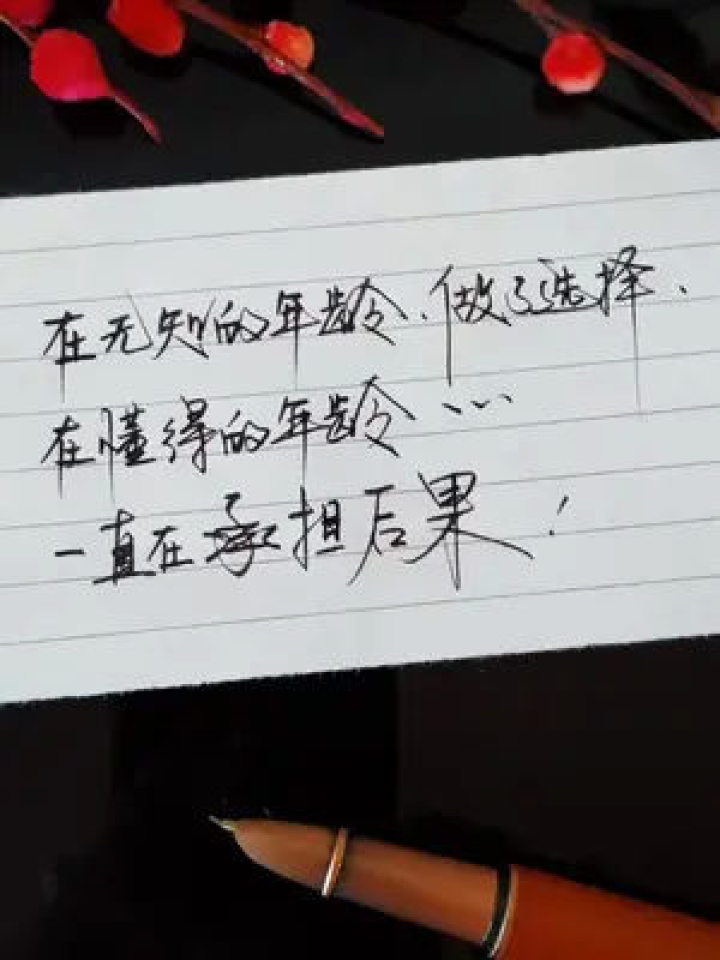 在无知的年龄.做了选择.
在懂得的年龄...
一直在承担后果!